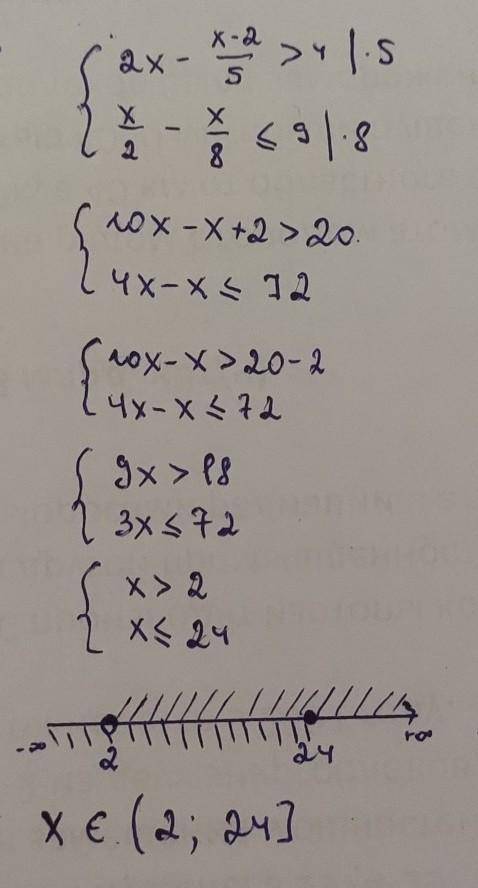 2x - \frac{x-2}{5} > 4 | ·5
\frac{x}{2} - \frac{x}{8} ≤ 9 | ·8
10x - x + 2 > 20
4x - x ≤ 72
10x - x > 20 - 2
4x - x ≤ 72
9x > 18
3x ≤ 72
x > 2
x ≤ 24
-∞ 2 24 +∞
x ∈ (2; 24]